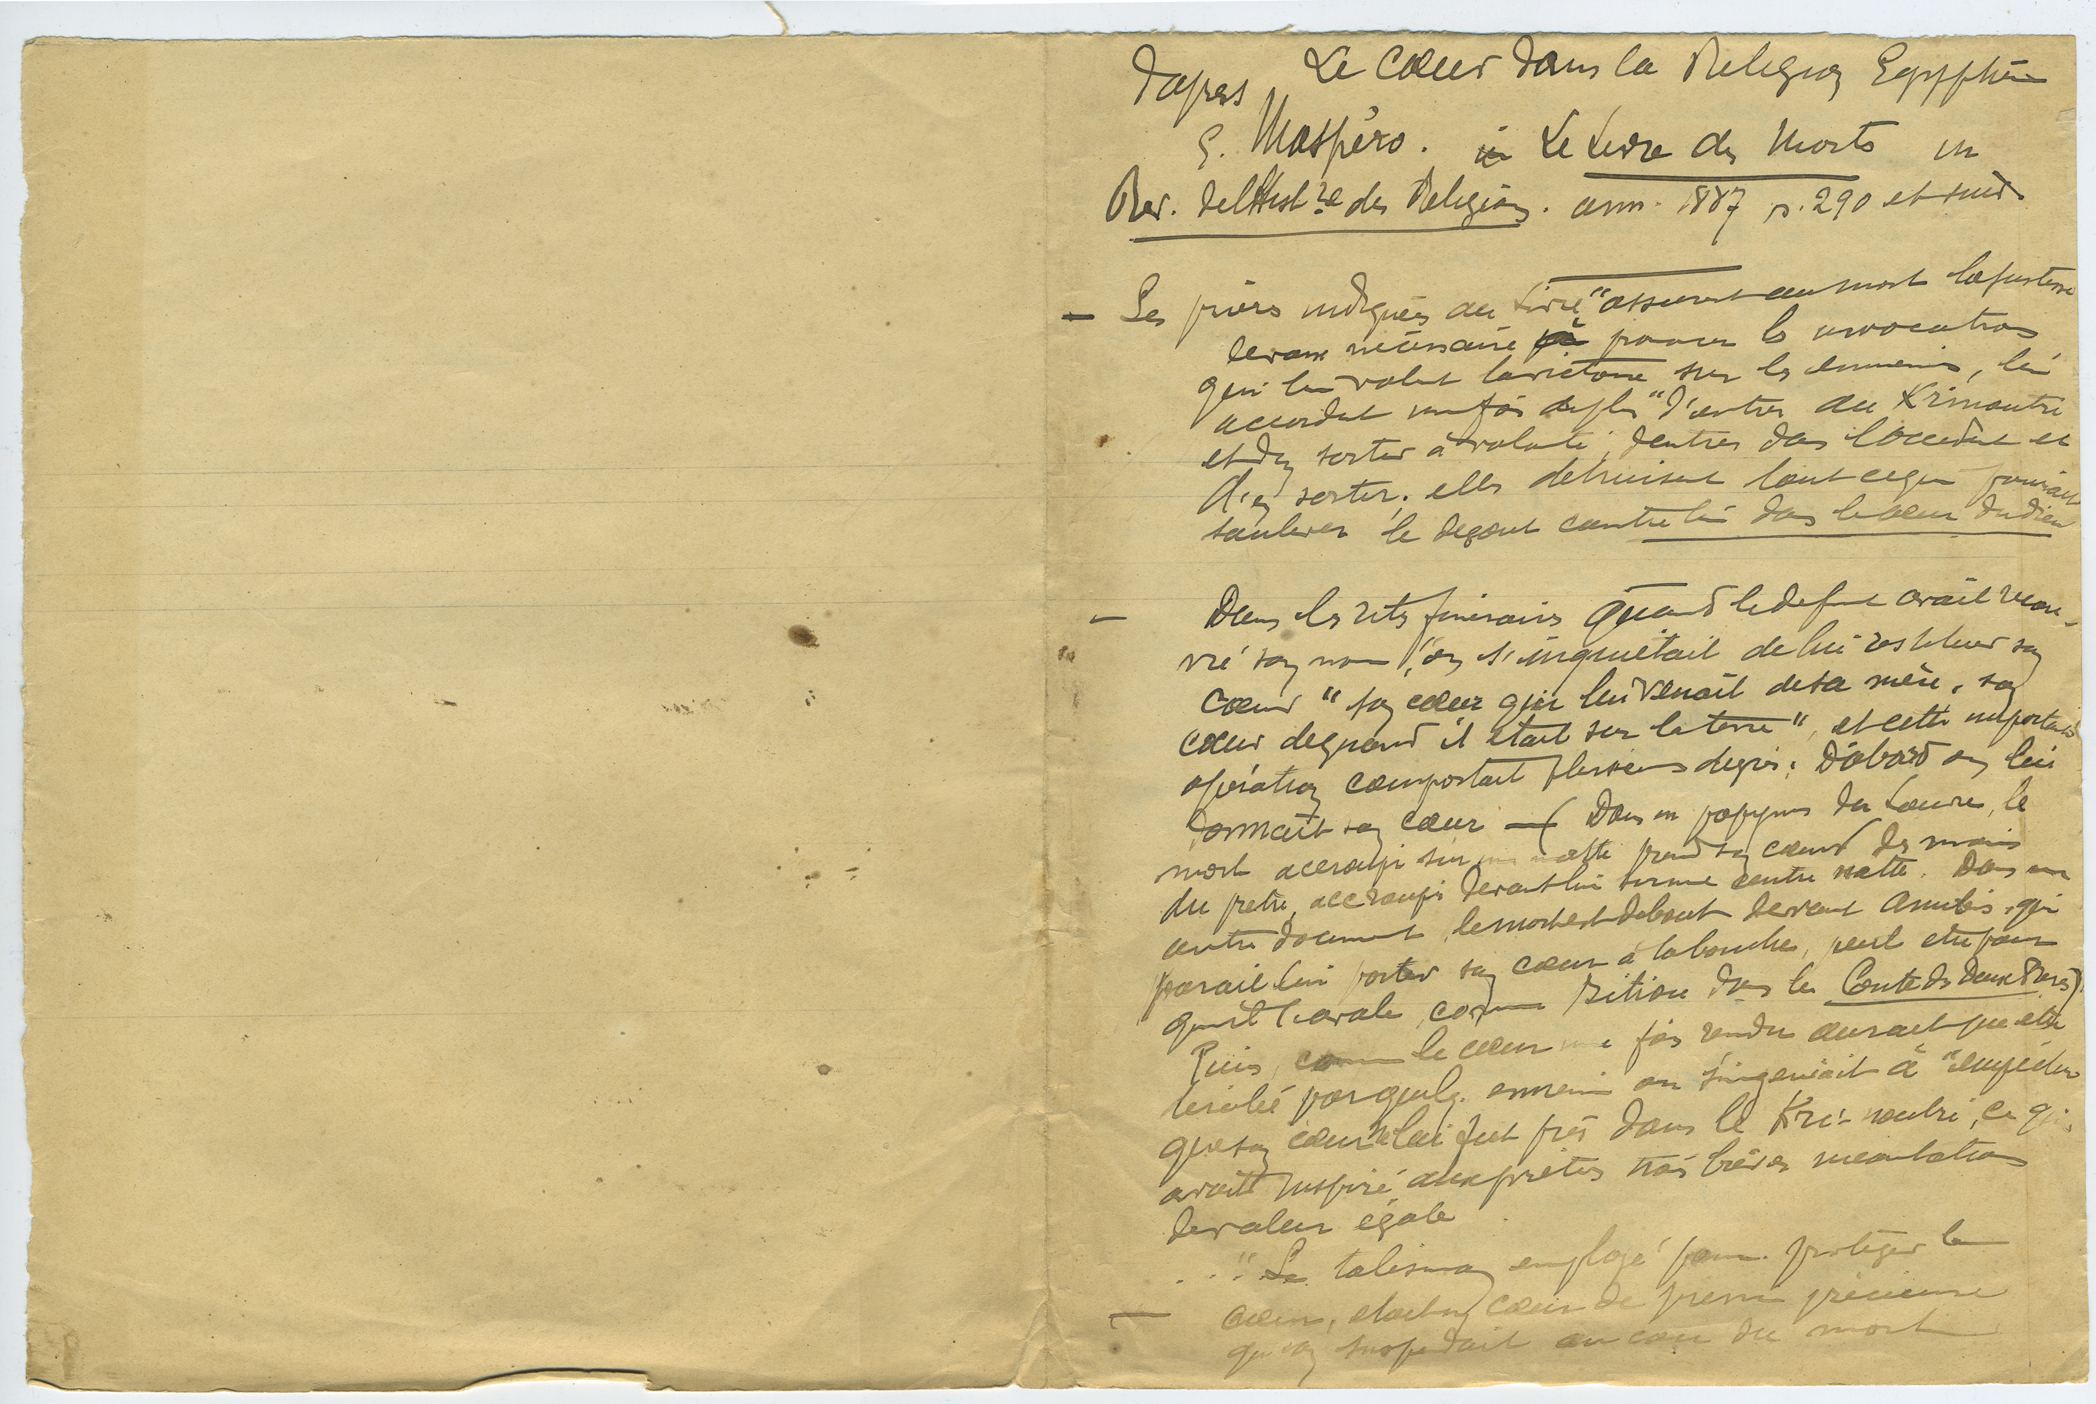 Le Cœur dans la Religion Egyptienne
d'après
G. Maspéro. in Le Livre des Morts in
Rev. de l'Hist re des Religions. ann. 1887 p. 290 et suiv
— Les prières indiquées au Livre "assurent au mort la justesse
de voix nécessaire pour prononcer les invocations
qui lui valent la victoire sur les ennemis, lui
accordent une fois de plus "d'entrer au Krinoutri
et d'en sortir à volonté, d'entrer dans l'Occident et
d'en sortir; elles détruisent tout ce qui pourrait
soulever le dégout contre lui dans le cœur du dieu
— Dans les rits funéraires Quand le defunt avait recou-
vré son nom, "on s'inquiétait de lui restituer son
cœur "son cœur qui lui venait de sa mère, son
cœur de quand il était sur la terre", et cette importante
opération comportait plusieurs degrés: D'abord on lui
donnait son cœur — (Dans un papyrus du Louvre, le
mort accroupi sur une natte prend son cœur des mains
du prêtre, accroupi devant lui sur une autre natte. Dans un
autre document, le mort est debout devant Anubis, qui
parait lui porter son cœur à la bouche, peut etre pour
qu'il l'avale, comme Bitiou dans le Conte des deux Frères)
Puis, comme le cœur une fois rendu aurait pu etre
revolé par quelq. ennemi on s'ingéniait à "empêcher
que son cœur ne lui fut pris dans le Kri-noutri, ce qui
avait inspiré aux prêtres trois brèves incantations
de valeur égale
. . " Le talisman employé pour protéger le
— cœur, était un cœur de pierre précieuse
qu'on suspendait au cou du mort